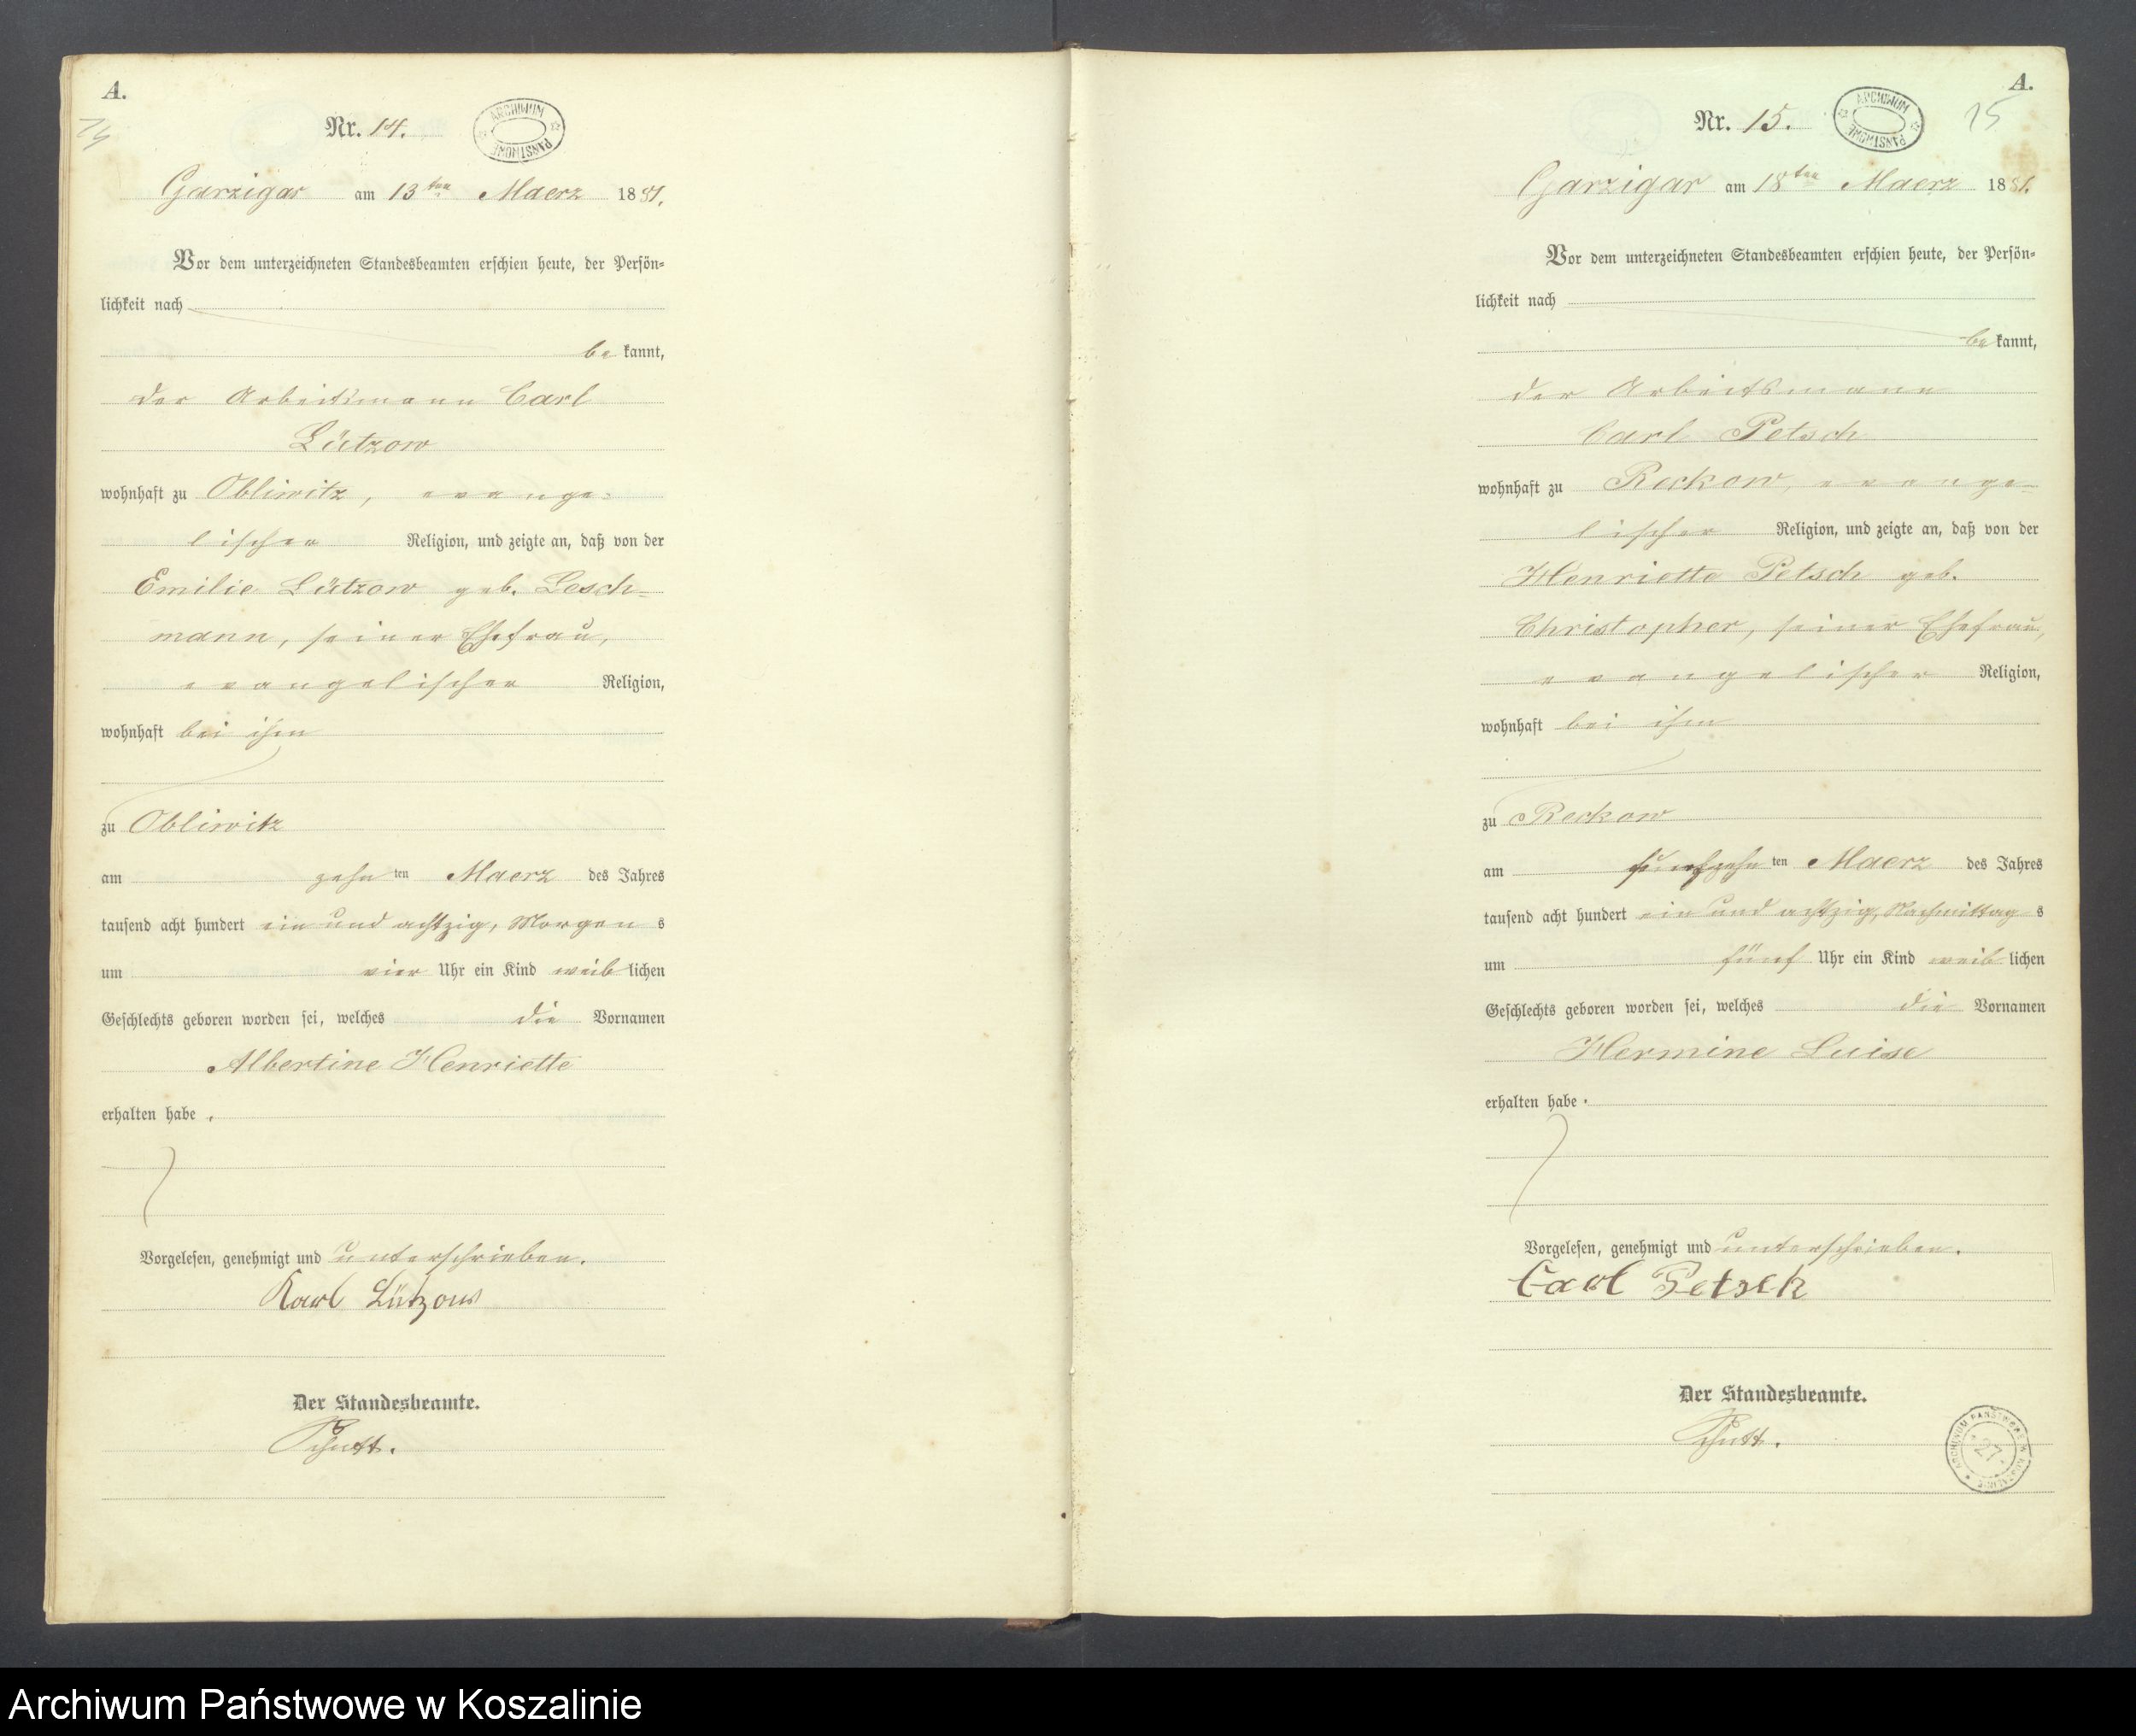 A.
14
Nr. 14.
ARCHIWUM PAŃSTWOWE
Garzigar am 13ten Maerz 1881.
Vor dem unterzeichneten Standesbeamten erschien heute, der Persön-
lichkeit nach
be kannt,
der Arbeitsmann Carl
Lützow
wohnhaft zu Obliwitz, evange-
lischer Religion, und zeigte an, daß von der
Emilie Lützow geb. Lesch-
mann, seiner Ehefrau,
evangelischer Religion,
wohnhaft bei ihm
zu Obliwitz
am zehn ten Maerz des Jahres
tausend acht hundert ein und achtzig, Morgen s
um vier Uhr ein Kind weib lichen
Geschlechts geboren worden sei, welches die Vornamen
Albertine Henriette
erhalten habe .
Vorgelesen, genehmigt und unterschrieben.
Karl Lützow
Der Standesbeamte.
A.
15
Nr. 15.
ARCHIWUM PAŃSTWOWE
Garzigar am 18ten Maerz 1881.
Vor dem unterzeichneten Standesbeamten erschien heute, der Persön-
lichkeit nach
be kannt,
der Arbeitsmann
Carl Petsch
wohnhaft zu Reckow, evange-
lischer Religion, und zeigte an, daß von der
Henriette Petsch geb.
Christopher, seiner Ehefrau,
evangelischer Religion,
wohnhaft bei ihm
zu Reckow
am fünfzehn ten Maerz des Jahres
tausend acht hundert ein und achtzig, Nachmittag s
um fünf Uhr ein Kind weib lichen
Geschlechts geboren worden sei, welches die Vornamen
Hermine Luise
erhalten habe .
Vorgelesen, genehmigt und unterschrieben.
Carl Petsch
Der Standesbeamte.
ARCHIWUM PAŃSTWOWE W KOSZALINIE
27
Archiwum Państwowe w Koszalinie